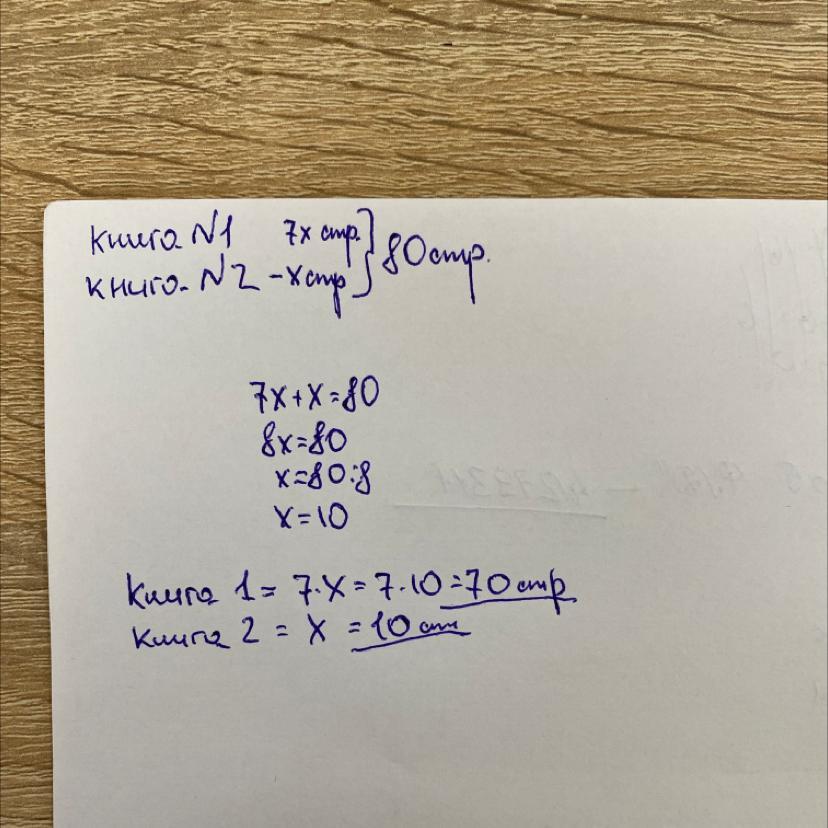 Книга N1 7x стр.
книга N2 - x стр } 80 стр.
7x+x=80
8x=80
x=80:8
x=10
Книга 1 = 7·x = 7·10 = 70 стр
Книга 2 = x = 10 ст